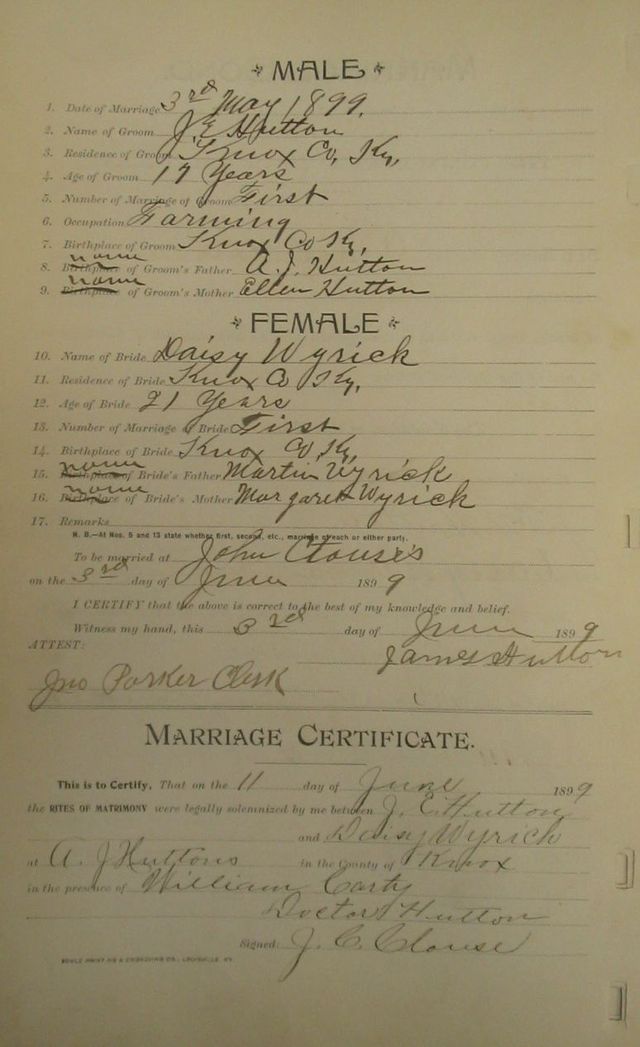 MALE
1. Date of Marriage 3rd May 1899.
2. Name of Groom J E Hutton
3. Residence of Groom Knox Co, Ky,
4. Age of Groom 17 Years
5. Number of Marriage of Groom First
6. Occupation Farming
7. Birthplace of Groom Knox Co Ky,
name
8. Birthplace of Groom's Father A. J. Hutton
name
9. Birthplace of Groom's Mother Ellen Hutton
FEMALE
10. Name of Bride Daisy Wyrick
11. Residence of Bride Knox Co Ky,
12. Age of Bride 21 Years
13. Number of Marriage of Bride First
14. Birthplace of Bride Knox Co, Ky,
name
15. Birthplace of Bride's Father Martin Wyrick
name
16. Birthplace of Bride's Mother Margaret Wyrick
17. Remarks
N. B.—At Nos. 5 and 13 state whether first, second, etc., marriage of each or either party.
To be married at John Clouse's
on the 3rd day of June 1899
I CERTIFY that the above is correct to the best of my knowledge and belief.
Witness my hand, this 3rd day of June 1899
ATTEST: James Hutton
Jno Parker Clerk
MARRIAGE CERTIFICATE.
This is to Certify, That on the 11 day of June 1899
the RITES OF MATRIMONY were legally solemnized by me between J. E. Hutton
and Daisy Wyrich
at A. J Huttons in the County of Knox
in the presence of William Carty
Doctor Hutton
Signed: J. C. Clouse